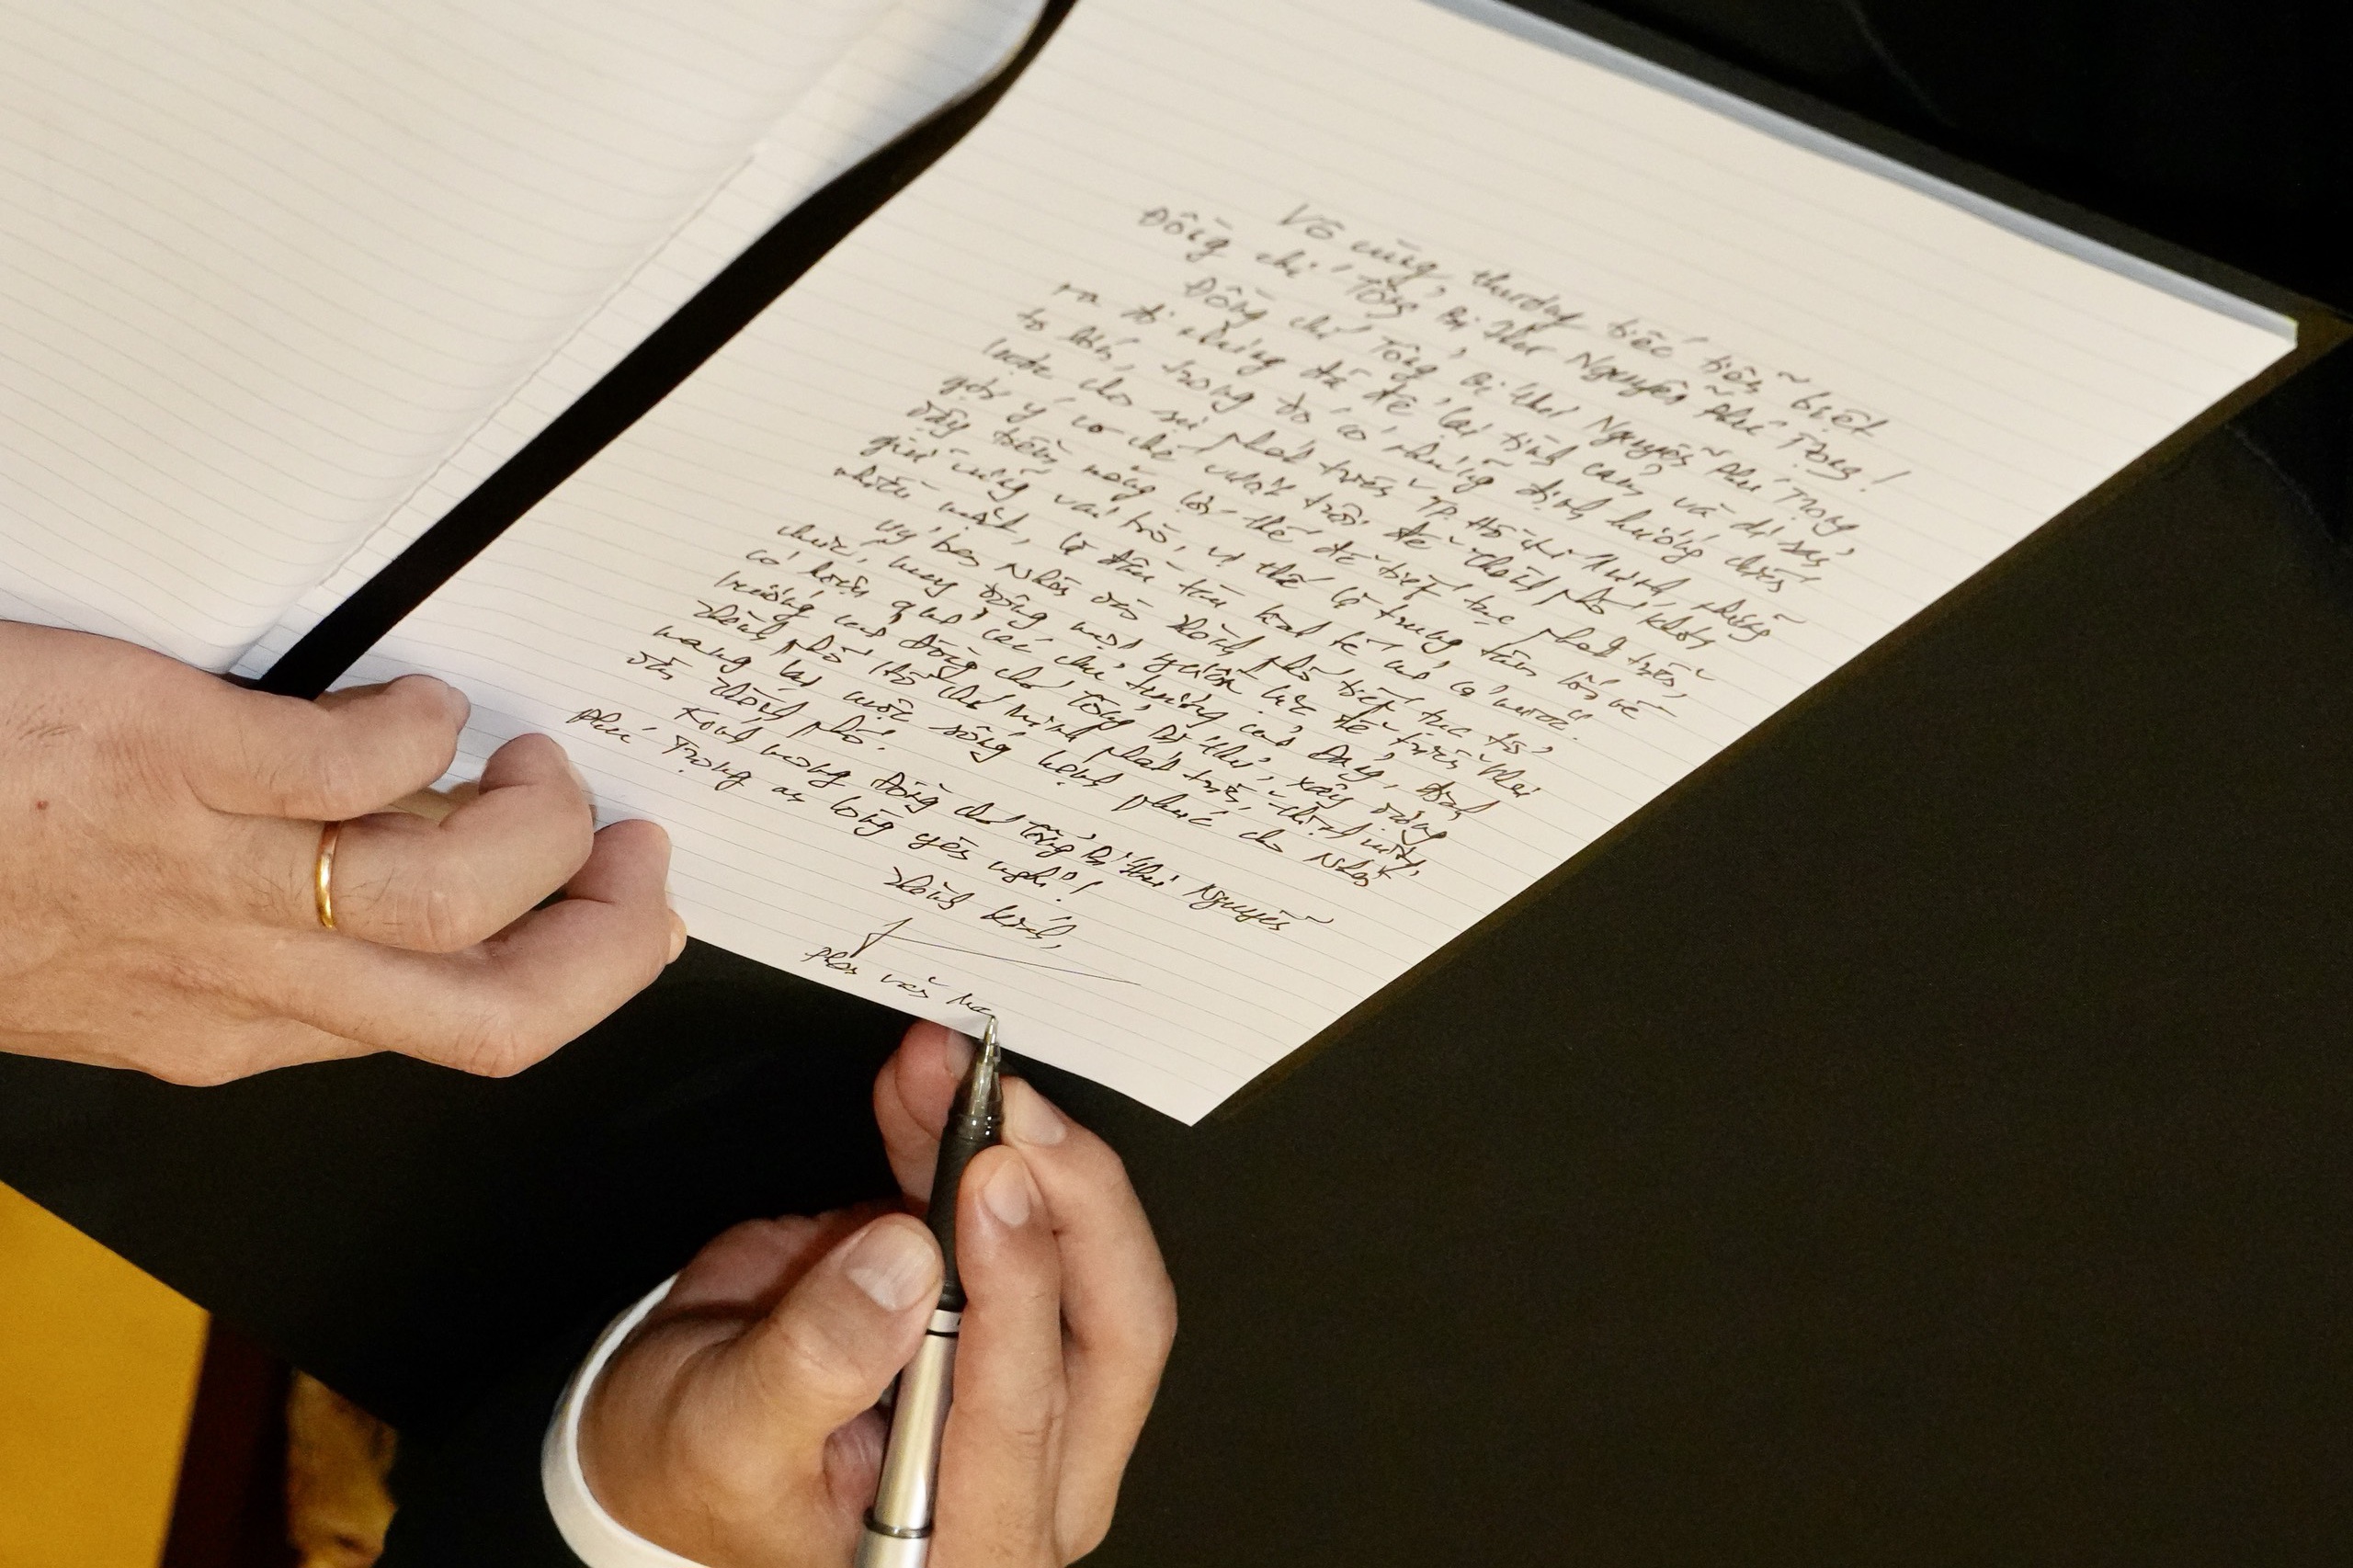 Vô cùng thương tiếc tiễn biệt
Đồng chí Tổng Bí thư Nguyễn Phú Trọng!
Đồng chí Tổng Bí thư Nguyễn Phú Trọng
ra đi nhưng đã để lại tình cảm và di sản
to lớn, trong đó có những định hướng chiến
lược cho sự phát triển TP. Hồ Chí Minh, những
gợi ý cơ chế vượt trội để thành phố khơi
dậy tiềm năng lợi thế để tiếp tục phát triển,
giữ vững vai trò, vị thế là trung tâm lớn về
nhiều mặt, là đầu tàu kinh tế của cả nước.
Uỷ ban Nhân dân thành phố tiếp tục tổ
chức, huy động mọi nguồn lực để triển khai
có hiệu quả các chủ trương của Đảng, định
hướng của đồng chí Tổng Bí thư, xây dựng
thành phố Hồ Chí Minh phát triển, thịnh vượng,
mang lại cuộc sống hạnh phúc cho Nhân
dân thành phố.
Kính mong Đồng chí Tổng Bí thư Nguyễn
Phú Trọng an lòng yên nghỉ!
Thành kính,
Phan Văn